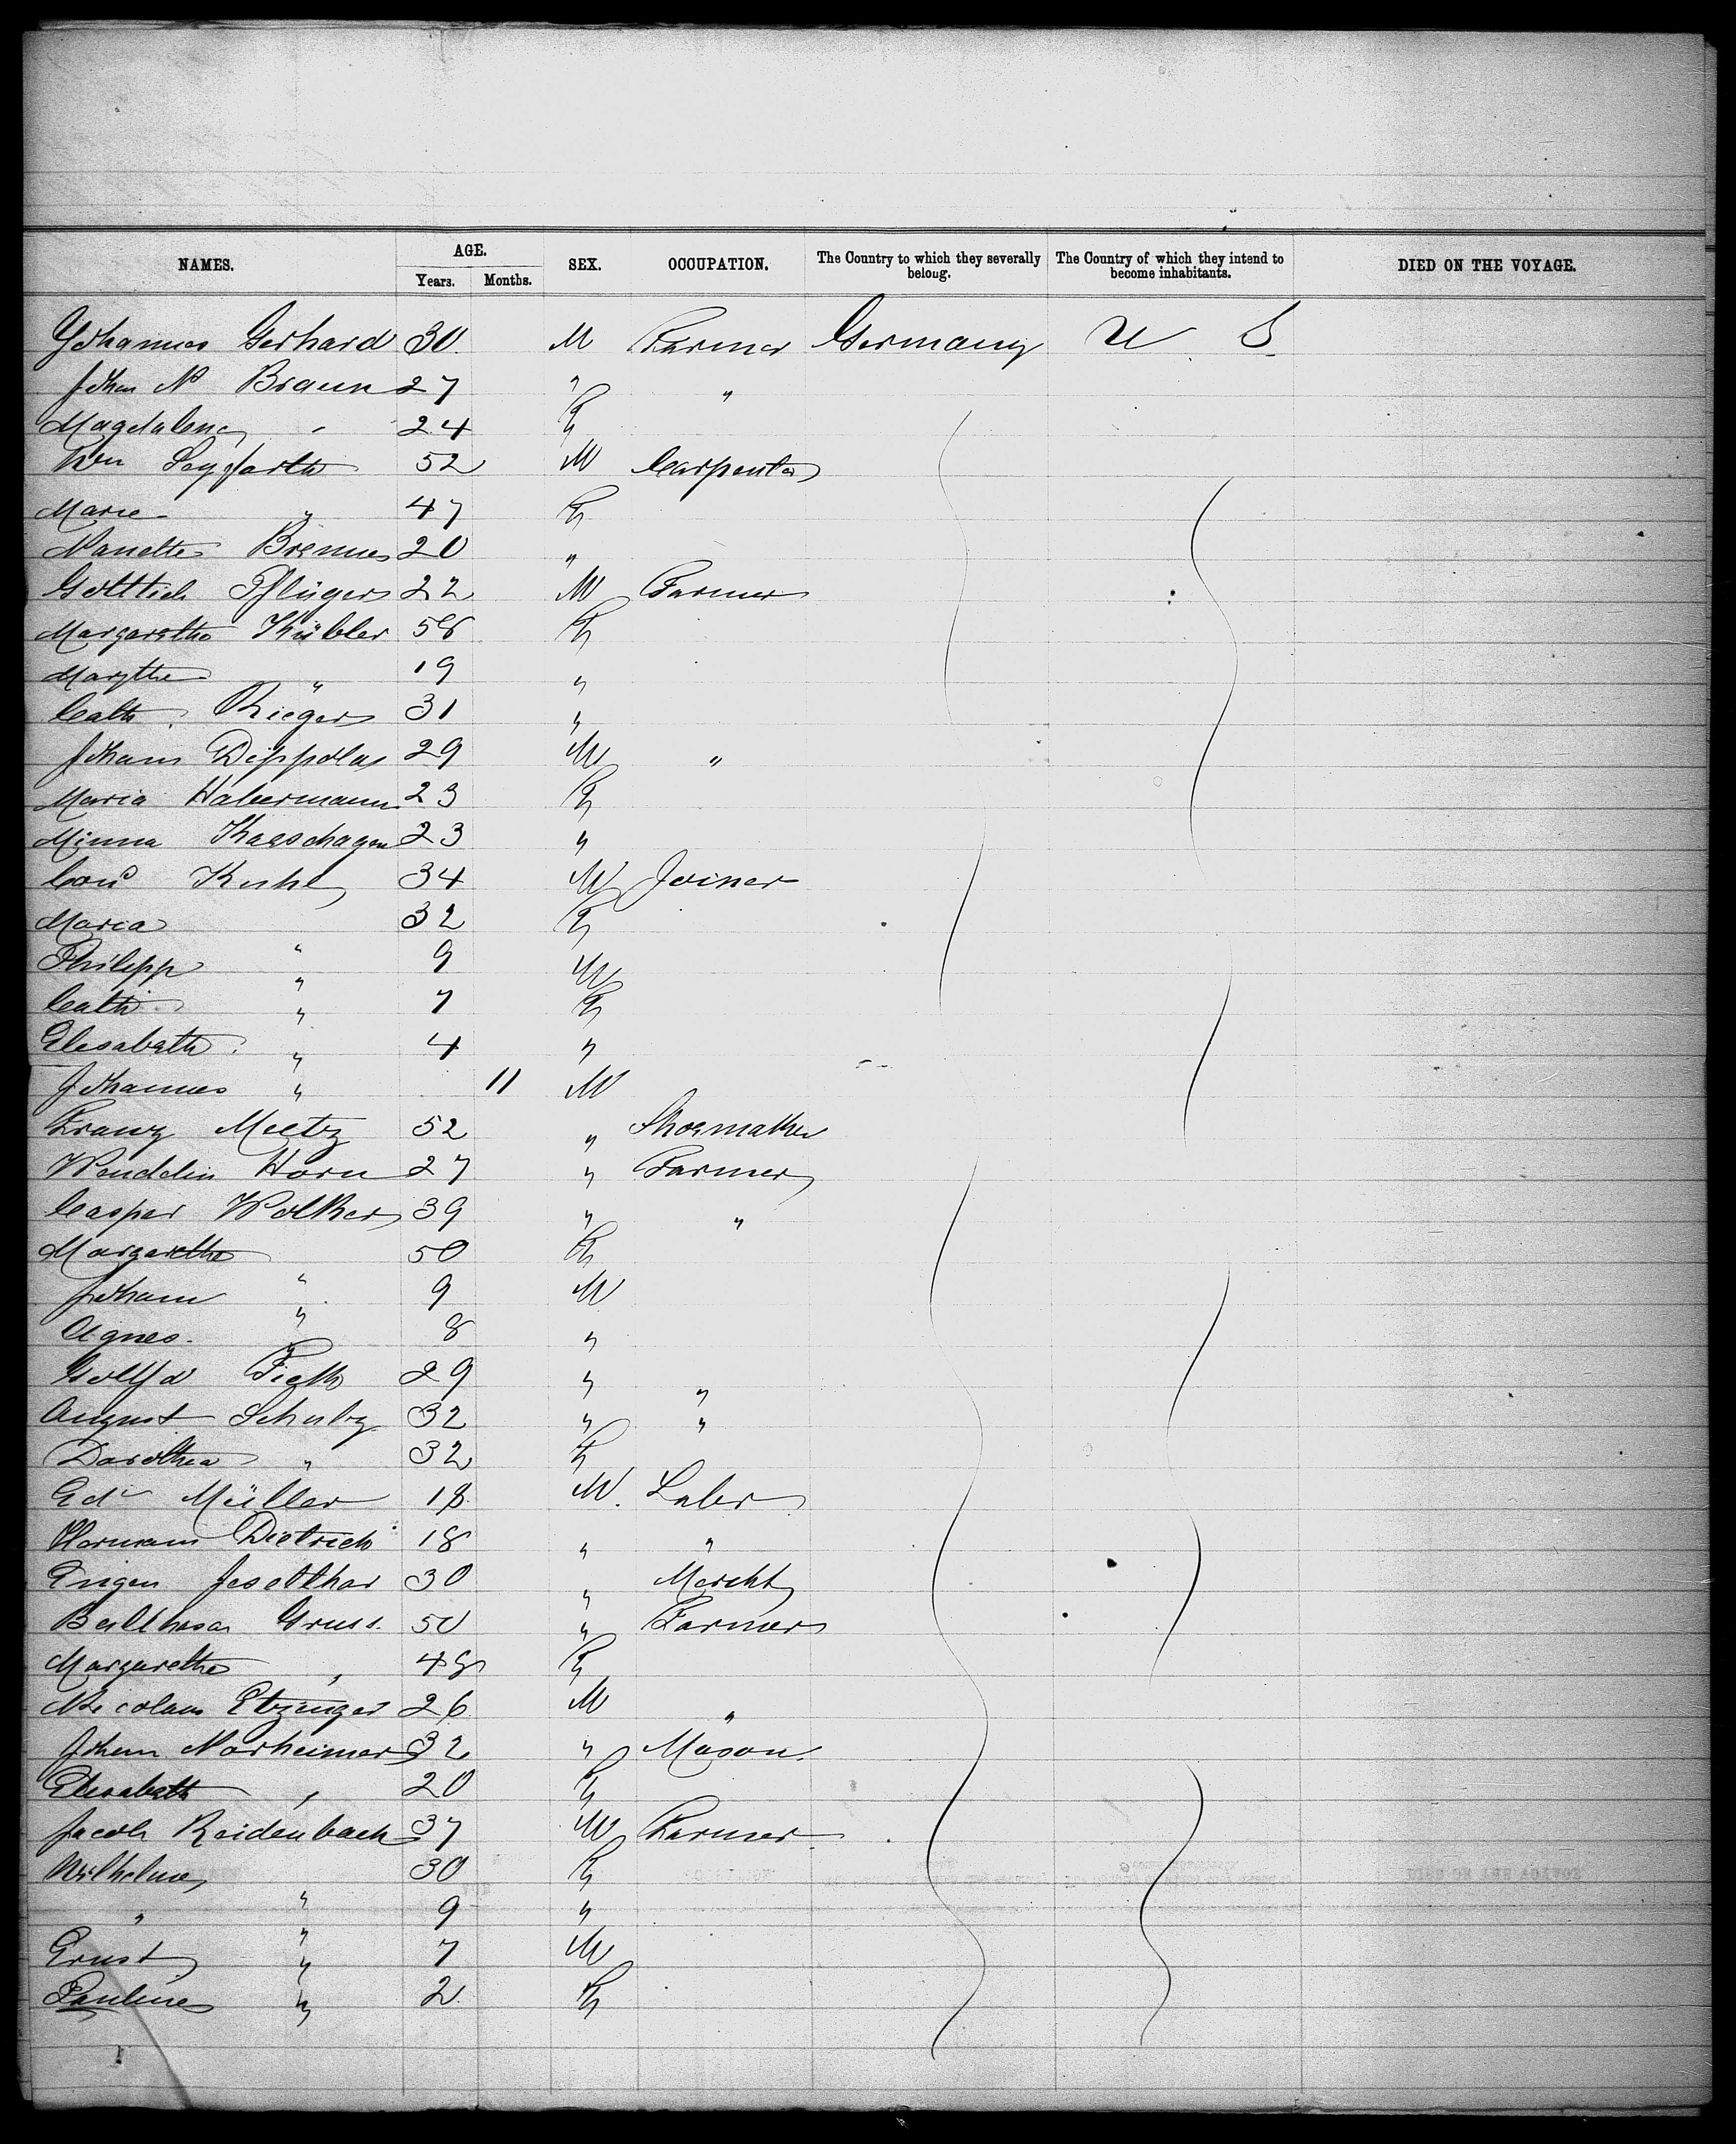 NAMES. AGE. SEX. OCCUPATION. The Country to which they severally belong. The Country of which they intend to become inhabitants. DIED ON THE VOYAGE.
Years. Months.
Johannes Gerhard 30 M Farmer Germany U. S.
Johan Braun 27 " "
Magdalena " 24 F
Wm Seyffarth 52 M Carpenter
Marie " 47 F
Nanette 20 "
Gottlieb Pflüger 22 M Farmer
Margaretha Kübler 58 F
" 19 "
Cath. Rieger 31 "
Johann 29 M "
Maria Habermann 23 F
Minna 23 "
Kuhl 34 M Joiner
Maria " 32 F
Philipp " 9 M
Cath. " 7 F
Elisabeth " 4 "
Johannes " 11 M
Franz 52 " Shoemaker
Wendelin Horn 27 " Farmer
Caspar Wolker 39 " "
Margaretha " 50 F
Johann " 9 M
Agnes " 8 "
29 " "
August Schulz 32 " "
Dorothea " 32 F
Ed Müller 18 M. Labr
Hermann Dietrich 18 " "
30 " Mercht
Balthasar Gruss. 50 " Farmer
Margaretha " 48 F
Nicolaus Etzinger 26 M "
Johann Norheimer 32 " Mason.
Elisabeth " 20 F
Jacob Reidenbach 37 M Farmer
Wilhelmine " 30 F
" " 9 "
Ernst " 7 M
Pauline " 2 F